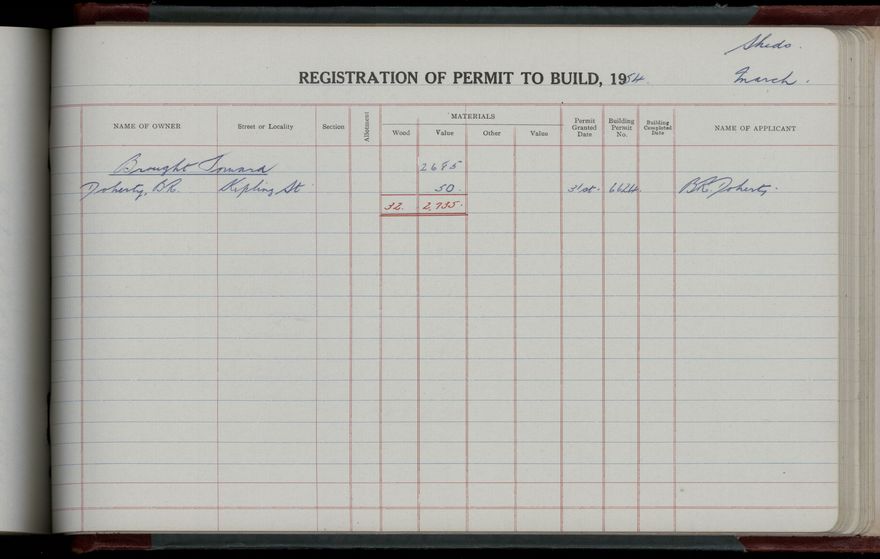 Sheds.
REGISTRATION OF PERMIT TO BUILD, 1954.
March.
NAME OF OWNER Street or Locality Section Allotment MATERIALS Wood Value Other Value Permit Granted Date Building Permit No. Building Completed Date NAME OF APPLICANT
Brought Forward 2685
Doherty, B.R. Kipling St 50. 31st. 6624. B.R. Doherty.
32. 2,735.